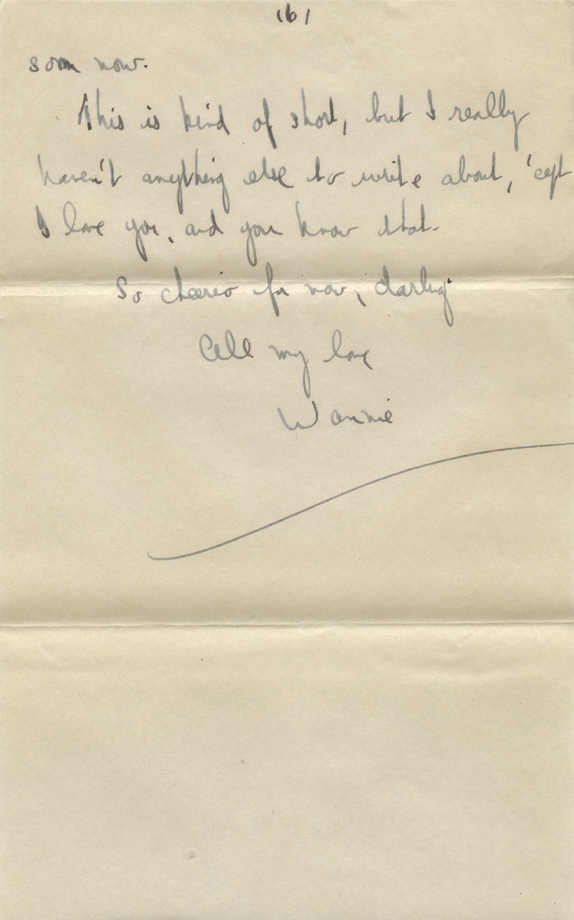 (6)
soon now.
This is kind of short, but I really
haven't anything else to write about, 'cept
I love you, and you know that.
So cheerio for now, darling
All my love
Wannie